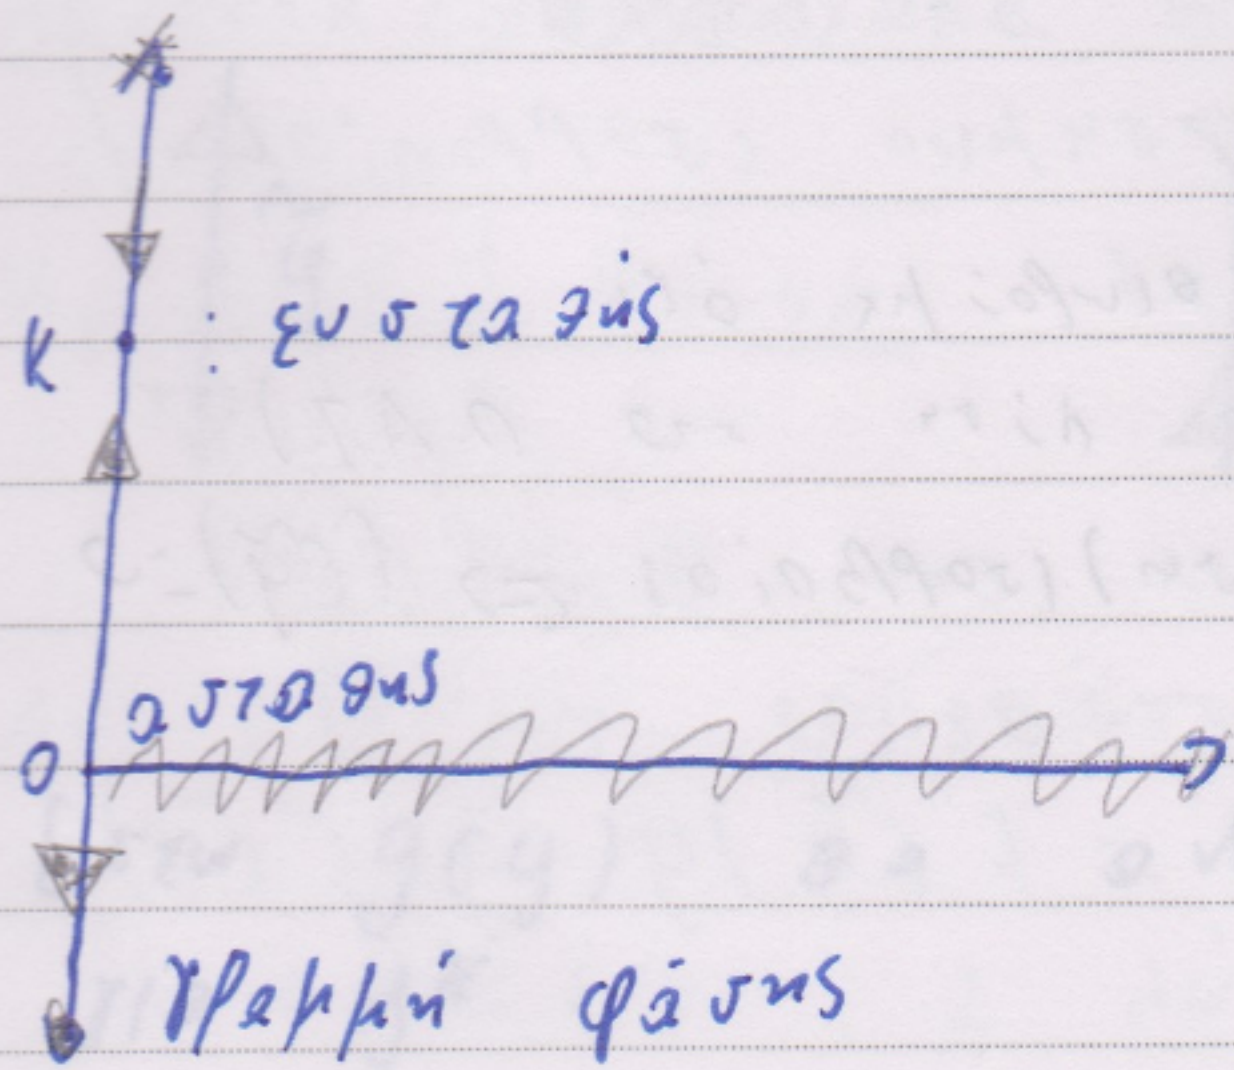 K : ευσταθής
ασταθης
0
γραμμή φάσης